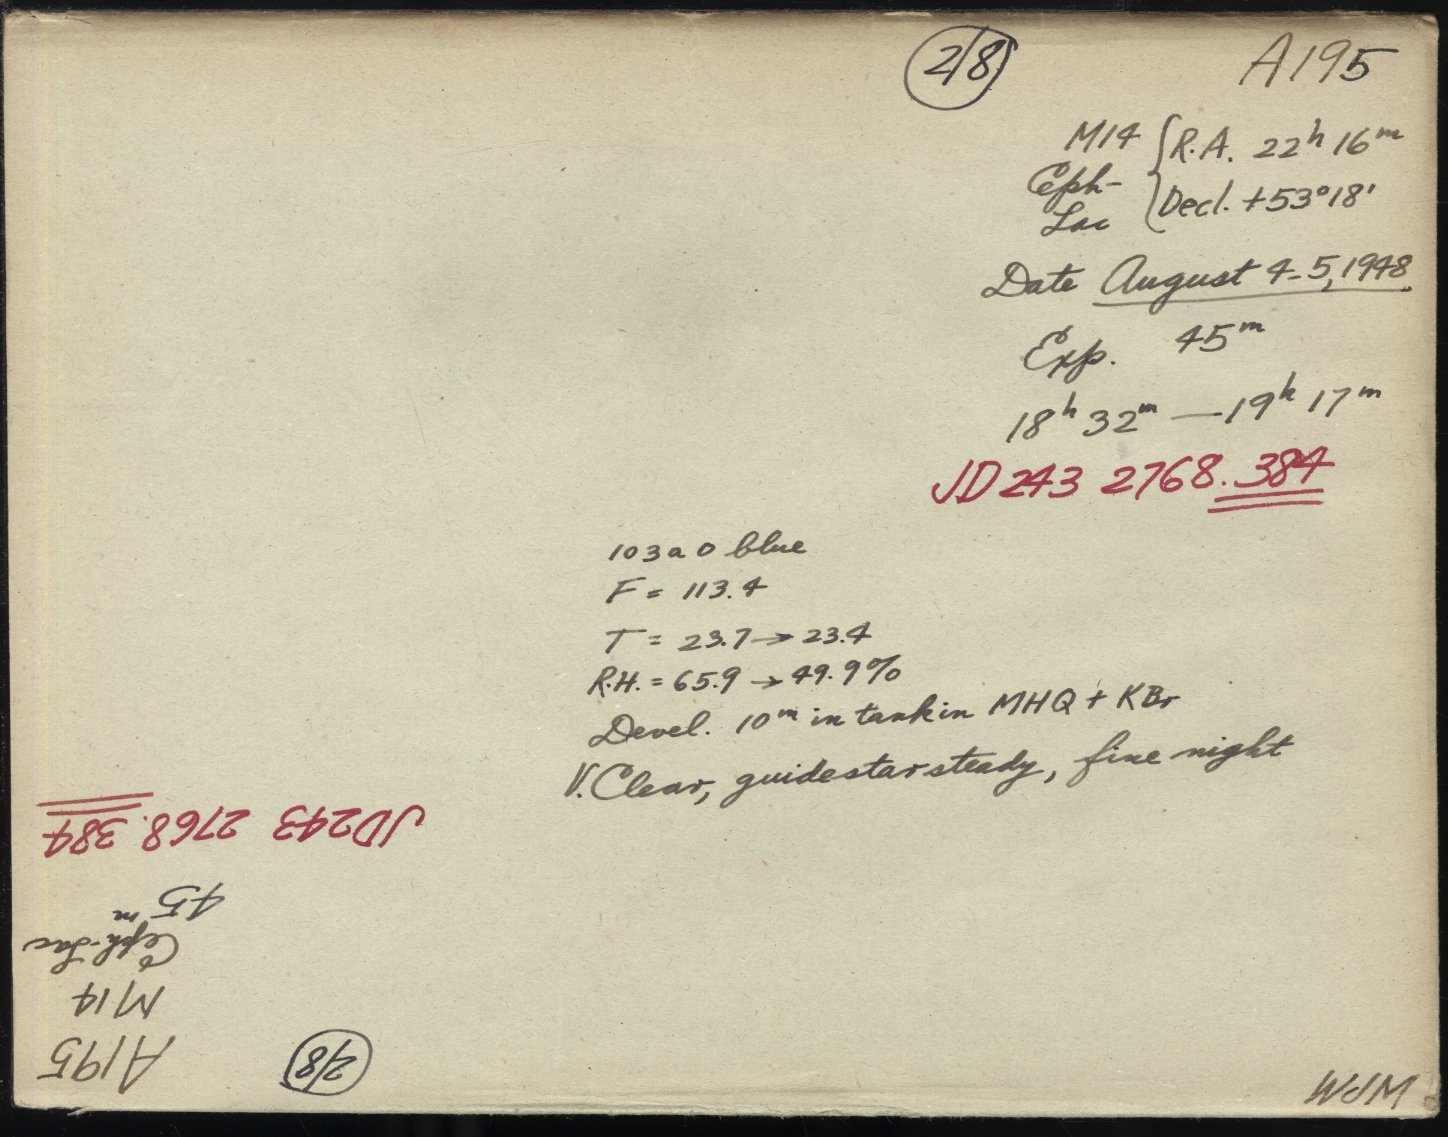 2/8
A195
M14 { R.A. 22h 16m
Ceph-Lac { Decl. +53°18'
Date August 4-5, 1948.
Exp. 45m
18h 32m — 19h 17m
JD 243 2768.384
103a O blue
F = 113.4
T = 23.7 → 23.4
R.H. = 65.9 → 49.9%
Devel. 10m in tank in MHQ + KBr
V. Clear, guidestar steady, fine night
JD243 2768.384
45m
Ceph-Lac
M14
A195
2/8